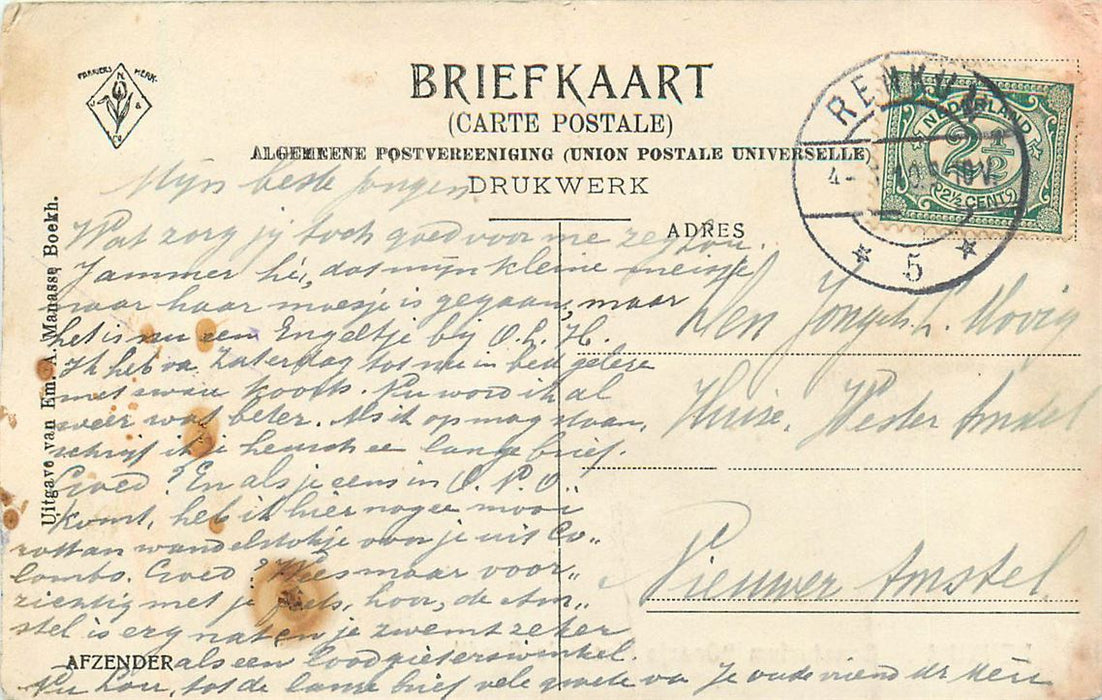 FABRIEKS MERK
N
J &
Co
BRIEFKAART
(CARTE POSTALE)
ALGEMEENE POSTVEREENIGING (UNION POSTALE UNIVERSELLE)
DRUKWERK
ADRES
NEDERLAND
2½
2½ CENT
4-
10
5
Uitgave van Em. A. Manasse Boekh.
Mijn beste Jongen
Wat zorg jij toch goed voor me zeg
Jammer hé, dat mijn kleine meisje
naar haar moesje is gegaan, maar
het is nu een Engeltje bij O. L. H.
Ik heb va Zaterdag tot nu in bed gelege
met zwau koorts. Nu word ik al
weer wat beter. Als ik op mag staan,
schrijf ik je heusch ee lange brief.
Goed? En als je eens in O. N. O.
komt, heb ik hier nog ee mooi
rottan wandelstokje voor je uit Co„
lombo. Goed? Wees maar voor„
zichtig met je fiets, hoor, de Am„
stel is erg nat en je zwemt zeker
als een loodgieterswinkel.
AFZENDER
Nu hoor, tot de lange brief vele groete va Je oude vriend
Den Jongeh. L. Movig
Huise. Wester Amstel
Nieuwer Amstel.